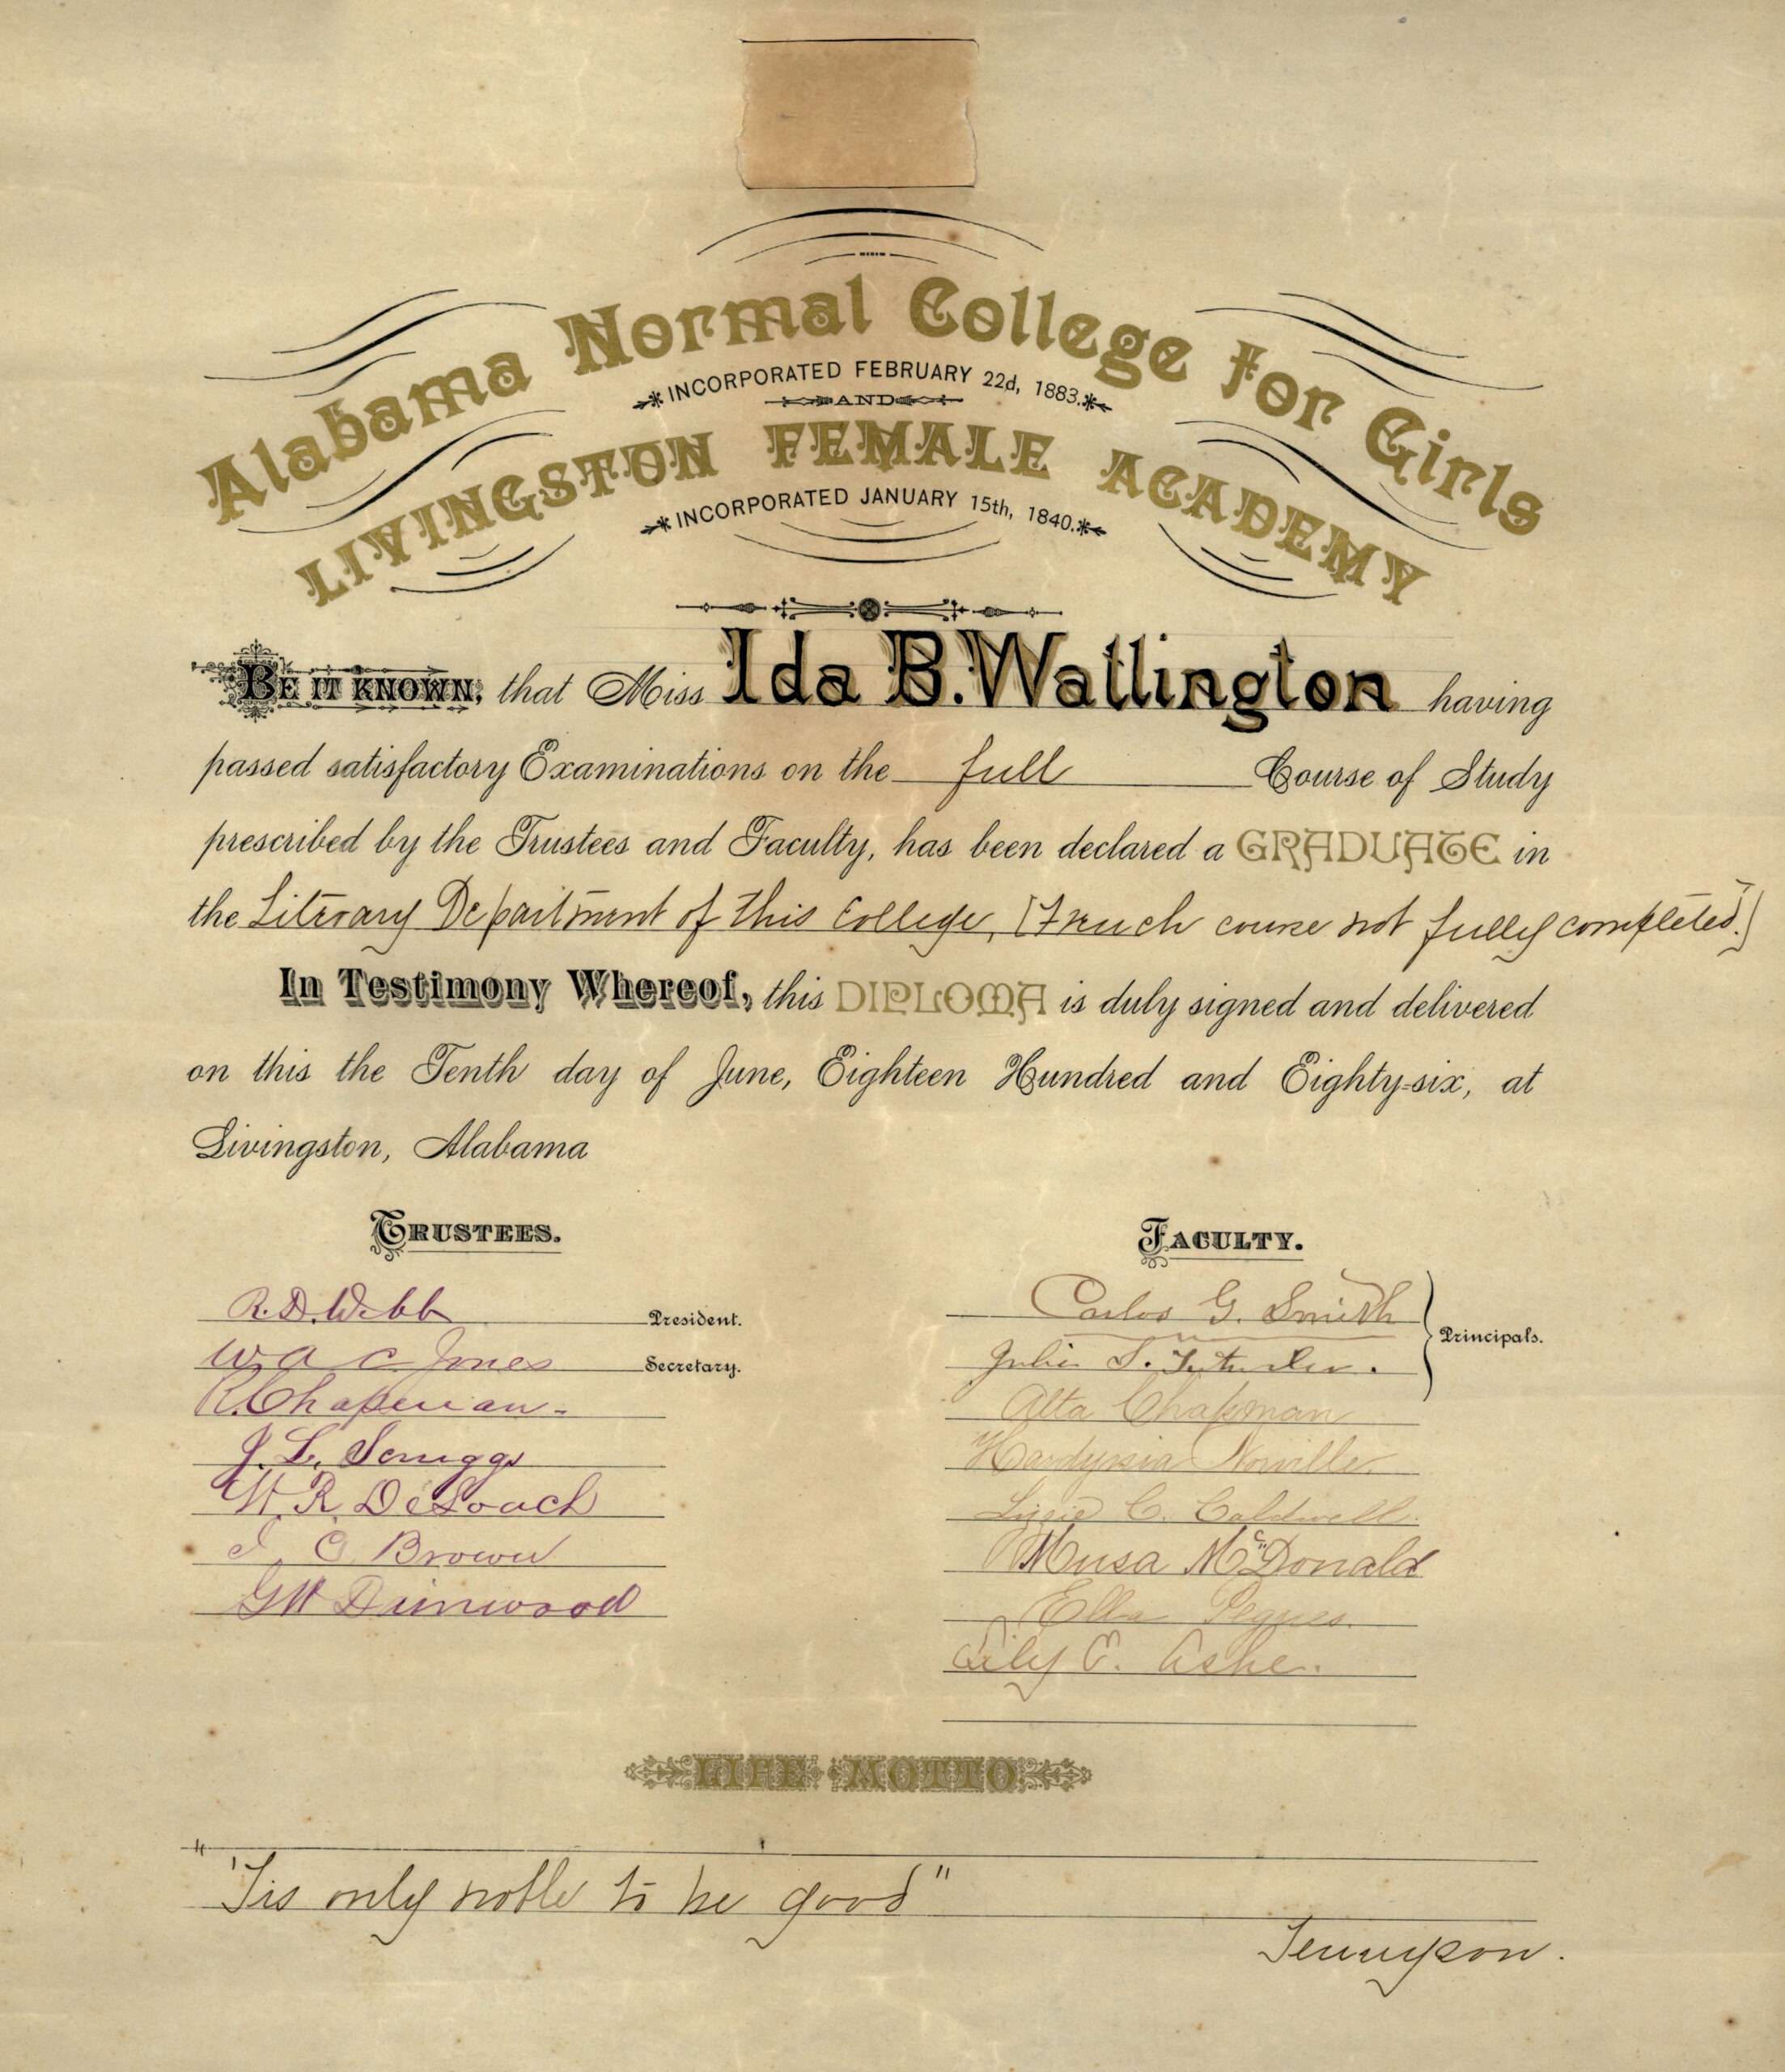 Alabama Normal College for Girls
INCORPORATED FEBRUARY 22d, 1883.
AND
LIVINGSTON FEMALE ACADEMY
INCORPORATED JANUARY 15th, 1840.
BE IT KNOWN, that Miss Ida B. Wallington having
passed satisfactory Examinations on the full Course of Study
prescribed by the Trustees and Faculty, has been declared a GRADUATE in
the Literary Department of this College, [French course not fully completed.]
In Testimony Whereof, this DIPLOMA is duly signed and delivered
on this the Tenth day of June, Eighteen Hundred and Eighty-six, at
Livingston, Alabama
TRUSTEES.
R. D. Webb President.
W A C Jones Secretary.
R. Chapman
J. L. Scruggs
W. R. DeLoach
I. C. Brown
G W Dunwood
FACULTY.
Carlos G. Smith
Julia S. Tutwiler.
Principals.
Alta Chapman
Hardynia Norville
Lizzie C. Caldwell.
Musa McDonald
Ella Pegues.
Lily E. Ashe.
LIFE MOTTO
"'Tis only noble to be good"
Tennyson.